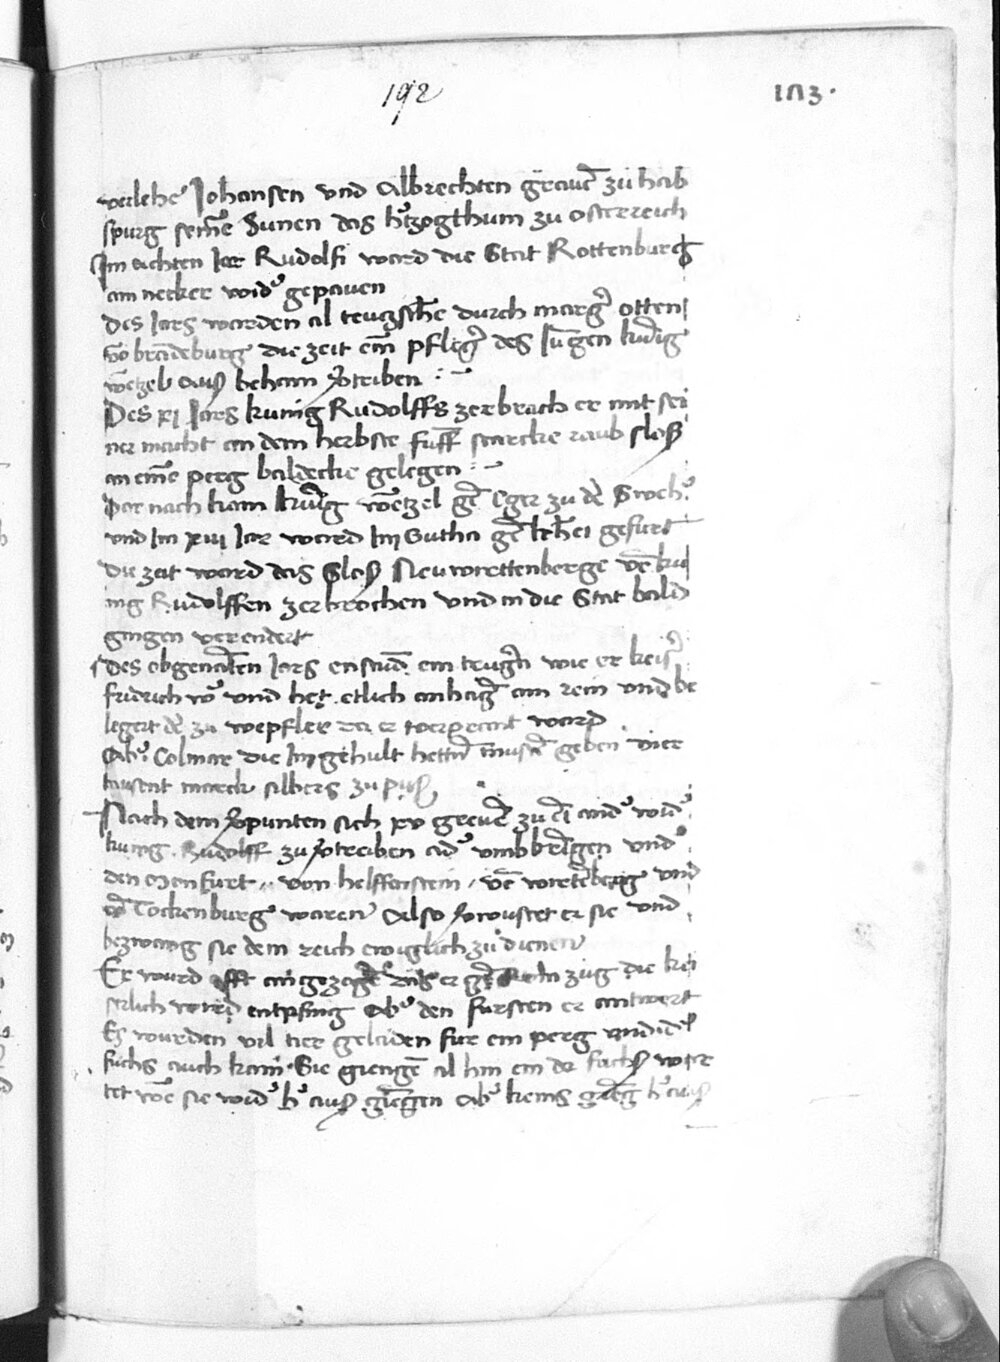 192
183.
verlehe Johansen vnd Albrechten graue͛ zu hab
spurg seine͂ Sunen das h͛tzogthum zu osterreich
Im achten Jar Rudolfi ward die Stat Rottenburg
am necker wid͛ gepauen
Des Jars warden al teuczsche durch marg͛ otten
vo͂ bra͂deburg die zeit ein pfleg͛ des Ju͂gen kunig
we͂tzel auß beham v͛treiben
Des xi Jars kunig Rudolffs zerbrach er mit sei
ner macht an dem herbste funff starcke raub sloß
an eine͂ perg baldecke gelegen
Dar nach kam kunig we͂tzel ge͂ Eger zu de͂
vnd Im xiii Jar ward Im Gutha ge͂ gefurt
die zeit ward das Sloß Neu wirttenberge vo͂ ku
nig Rudolffen zerbrochen vnd in die Stat bald
gingen verendert
Des obgena͂ten Jars enstund ein wie er keis͛
fridrich w͛ vnd het etlich anhag͛ am rein vnd be
legert d͛ zu wepfler da er verprent ward
Ab͛ Colmar die Im gehult hetten muste͂ geben vier
tausent marck silbers zu puß
Nach dem v͛punten sich xv graue͂ zu ei͂ and͛ wid͛
kunig Rudolff zu v͛treiben ad͛ vmb bringen vnd͛
den von helffenstein vo͂ wirte͂berg vnd
vo͂ Tockenburg waren Also v͛wustet er sie vnd
bezwang sie dem reich ewiglich zu dienen
Er ward offt das er ge͂ Rom zug die kei
serlich wird entpfing Ab͛ den fursten er antwert
Es wurden vil tier geladen fur ein perg vnd d͛
fuchs auch kam Sie gienge͂ al hin ein der fuchs war
tet we͂ sie wid͛ h͛ auß giengen Ab͛ keins gieng h͛ auß